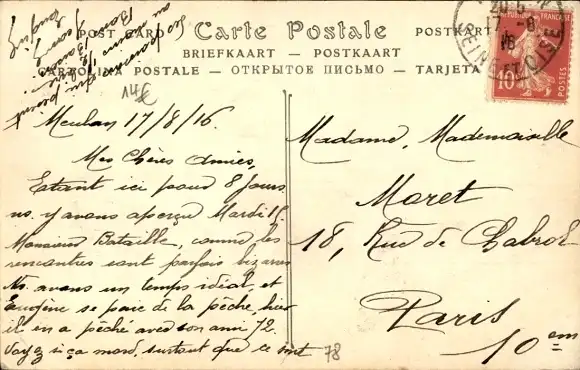 Carte Postale
POSTKART
BRIEFKAART — POSTKAART
CARTOLINA POSTALE — ОТКРЫТОЕ ПИСЬМО — TARJETA
RÉPUBLIQUE FRANÇAISE
10
POSTES
SEINE ET OISE
Meulan 17/8/16.
Mes Chères Amies,
Etant ici pour 8 jours
ns. y avons aperçu Mardi 15
Monsieur Bataille, comme les
rencontres sont parfois bizarres
Ns. avons un temps idéal, et
Eugène se paie de la pêche, hier
il en a pêché avec son ami 72.
Voyez si ça mord, surtout que ce sont
Madame, Mademoiselle
Moret
18, Rue de Chabrol
Paris
10em
78